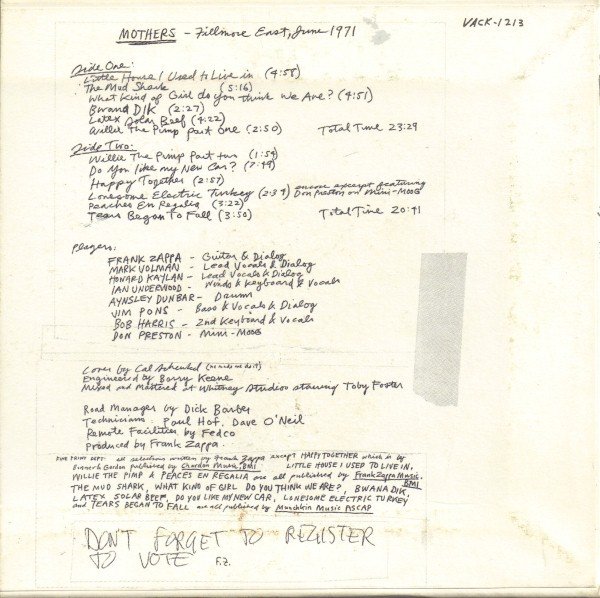 MOTHERS - Fillmore East, June 1971
VACK-1213
Side One:
Little House I Used to Live in (4:58)
The Mud Shark (5:16)
What Kind of Girl do you think We Are? (4:51)
Bwana DIK (2:27)
Latex Solar Beef (4:22)
Willie The Pimp part one (2:50) Total Time 23:29
Side Two:
Willie The Pimp Part two (1:54)
Do You like my New Car? (7:49)
Happy Together (2:57)
Lonesome Electric Turkey (2:34) encore excerpt featuring Don Preston on Mini-MOOG
Peaches En Regalia (3:22)
Tears Began To Fall (3:50) Total Time 20:41
Players:
FRANK ZAPPA - Guitar & Dialog
MARK VOLMAN - Lead Vocals & Dialog
HOWARD KAYLAN - Lead Vocals & Dialog
IAN UNDERWOOD - Winds & Keyboard & Vocals
AYNSLEY DUNBAR - Drums
JIM PONS - Bass & Vocals & Dialog
BOB HARRIS - 2nd Keyboard & Vocals
DON PRESTON - Mini-MOOG
Cover by Cal Schenkel
Engineered by Barry Keene
Mixed and Mastered at Whitney Studios starring Toby Foster
Road Manager by Dick Barber
Technicians: Paul Hof, Dave O'Neil
Remote Facilities by Fedco
Produced by Frank Zappa
FINE PRINT DEPT: all selections written by Frank Zappa except HAPPY TOGETHER which is by
Bonner & Gordon published by Chardon Music, BMI LITTLE HOUSE I USED TO LIVE IN,
WILLIE THE PIMP & PEACES EN REGALIA are all published by Frank Zappa Music, BMI
THE MUD SHARK, WHAT KIND OF GIRL DO YOU THINK WE ARE?, BWANA DIK
LATEX SOLAR BEEF, DO YOU LIKE MY NEW CAR, LONESOME ELECTRIC TURKEY
and TEARS BEGAN TO FALL are all published by Munchkin Music ASCAP
DON'T FORGET TO REGISTER
TO VOTE F.Z.